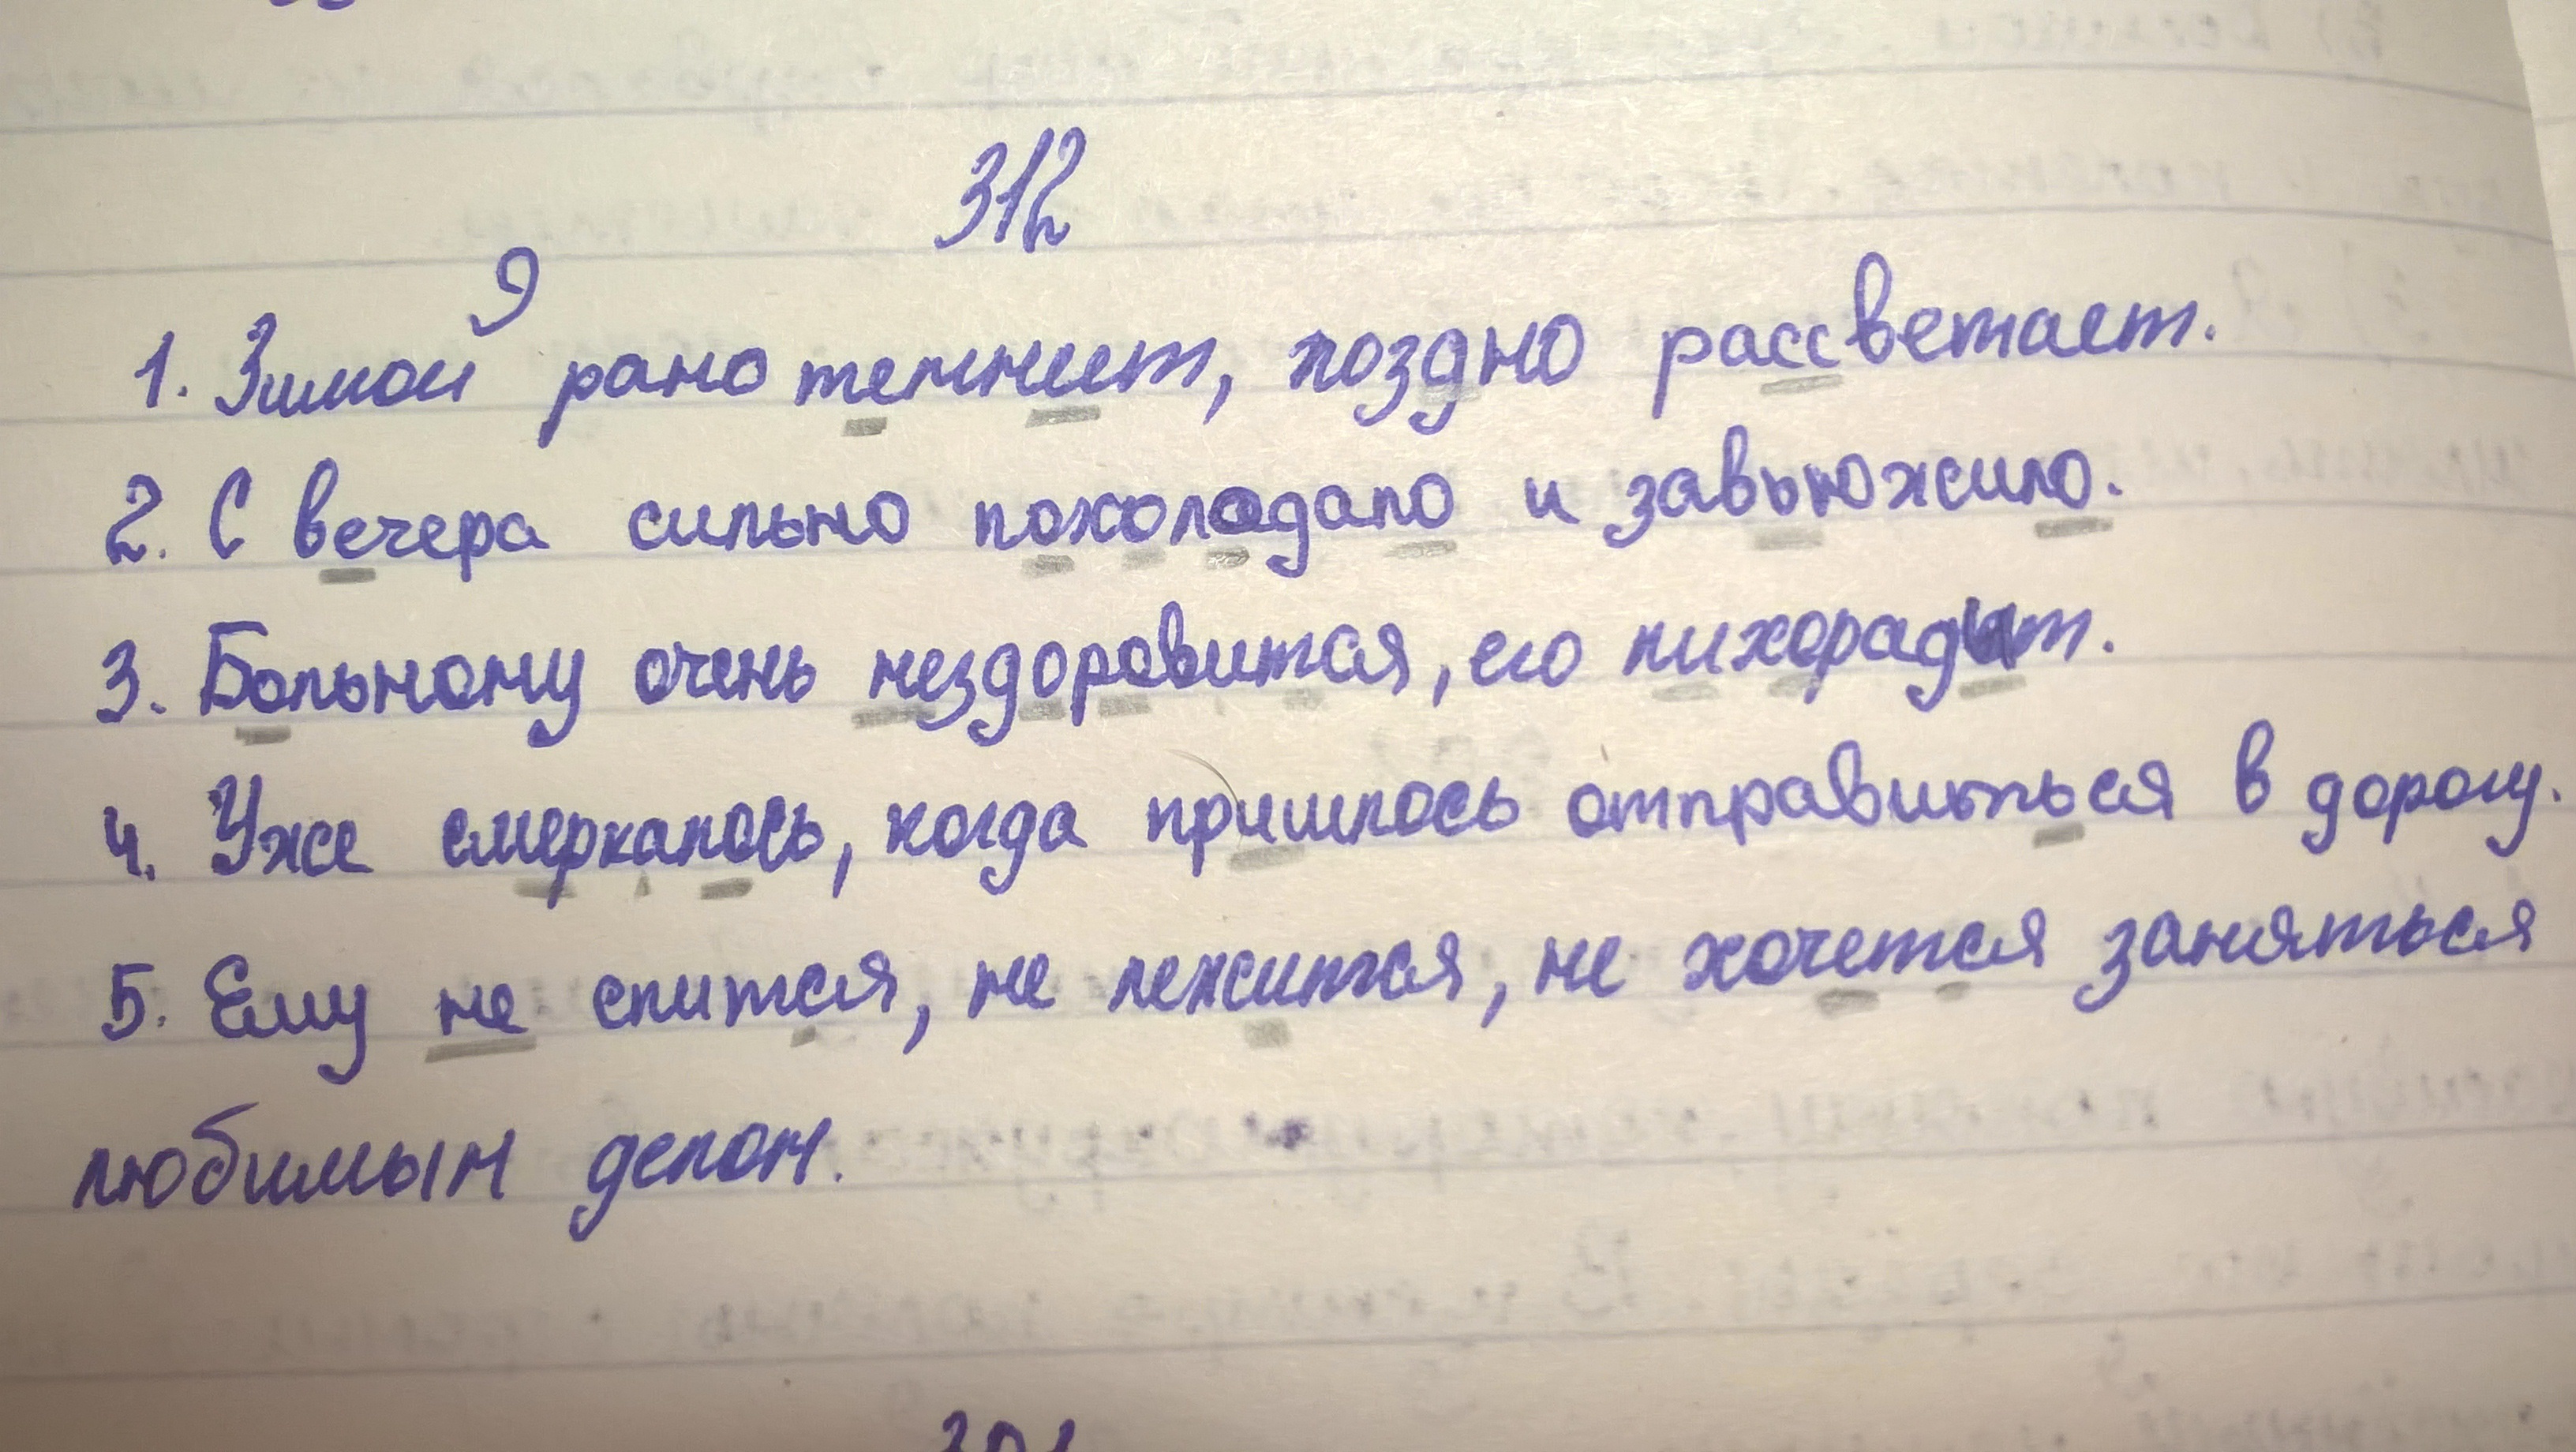 312
9
1. Зимой рано темнеет, поздно рассветает.
2. С вечера сильно похолодало и завьюжило.
3. Больному очень нездоровится, его лихорадит.
4. Уже смеркалось, когда пришлось отправиться в дорогу.
5. Ему не спится, не лежится, не хочется заняться
любимым делом.